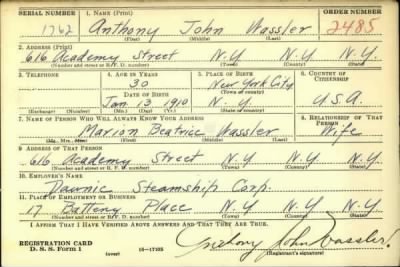 SERIAL NUMBER 1. NAME (Print) ORDER NUMBER
1762 Anthony John Wassler 2485
(First) (Middle) (Last)
2. ADDRESS (Print)
616 Academy Street N.Y. N.Y. N.Y.
(Number and street or R. F. D. number) (Town) (County) (State)
3. TELEPHONE 4. AGE IN YEARS 5. PLACE OF BIRTH 6. COUNTRY OF CITIZENSHIP
30 New York City
DATE OF BIRTH (Town or county)
Jan. 13 1910 N.Y. U.S.A.
(Exchange) (Number) (Mo.) (Day) (Yr.) (State or country)
7. NAME OF PERSON WHO WILL ALWAYS KNOW YOUR ADDRESS 8. RELATIONSHIP OF THAT PERSON
Marion Beatrice Wassler Wife
(Mr., Mrs., Miss) (First) (Middle) (Last)
9. ADDRESS OF THAT PERSON
616 Academy Street N.Y. N.Y. N.Y.
(Number and street or R. F. D. number) (Town) (County) (State)
10. EMPLOYER'S NAME
Steamship Corp.
11. PLACE OF EMPLOYMENT OR BUSINESS
17 Battery Place N.Y. N.Y. N.Y.
(Number and street or R. F. D. number) (Town) (County) (State)
I AFFIRM THAT I HAVE VERIFIED ABOVE ANSWERS AND THAT THEY ARE TRUE.
REGISTRATION CARD
D. S. S. Form 1 (over) 16—17105 Anthony John Wassler
(Registrant's signature)